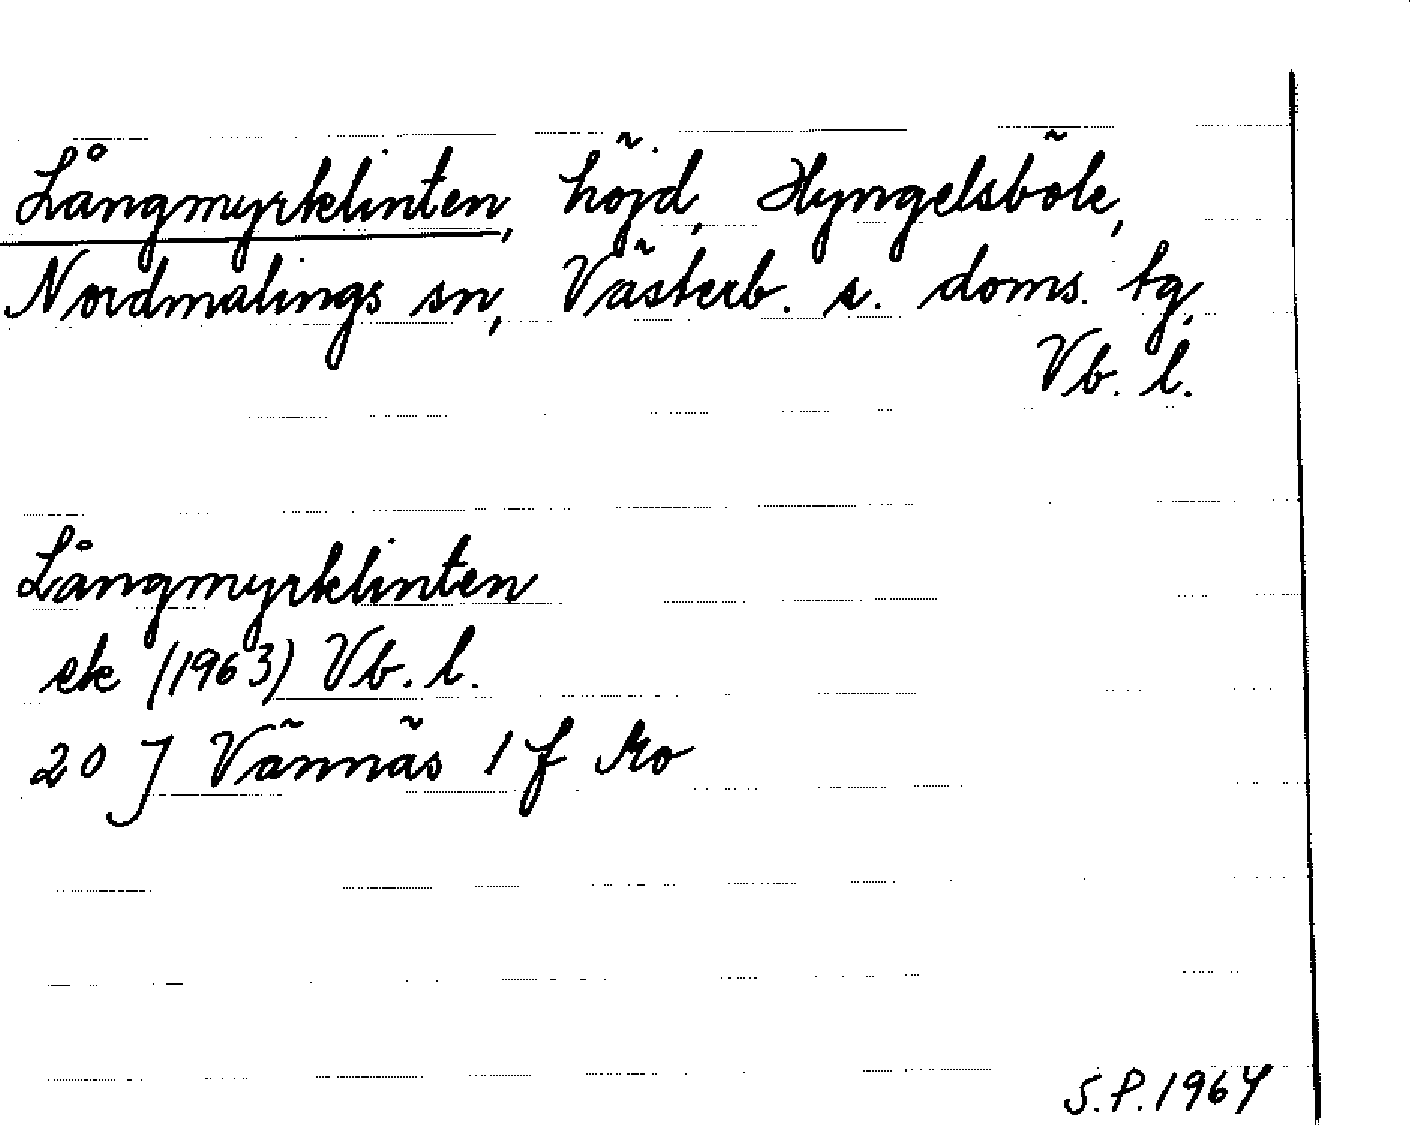 Långmyrklinten, höjd, Hyngelsböle,
Nordmalings sn, Västerb. s. doms. tg.
Vb. l.
Långmyrklinten
ek (1963) Vb. l.
20 J Vännäs 1 f Mo
S.P. 1964